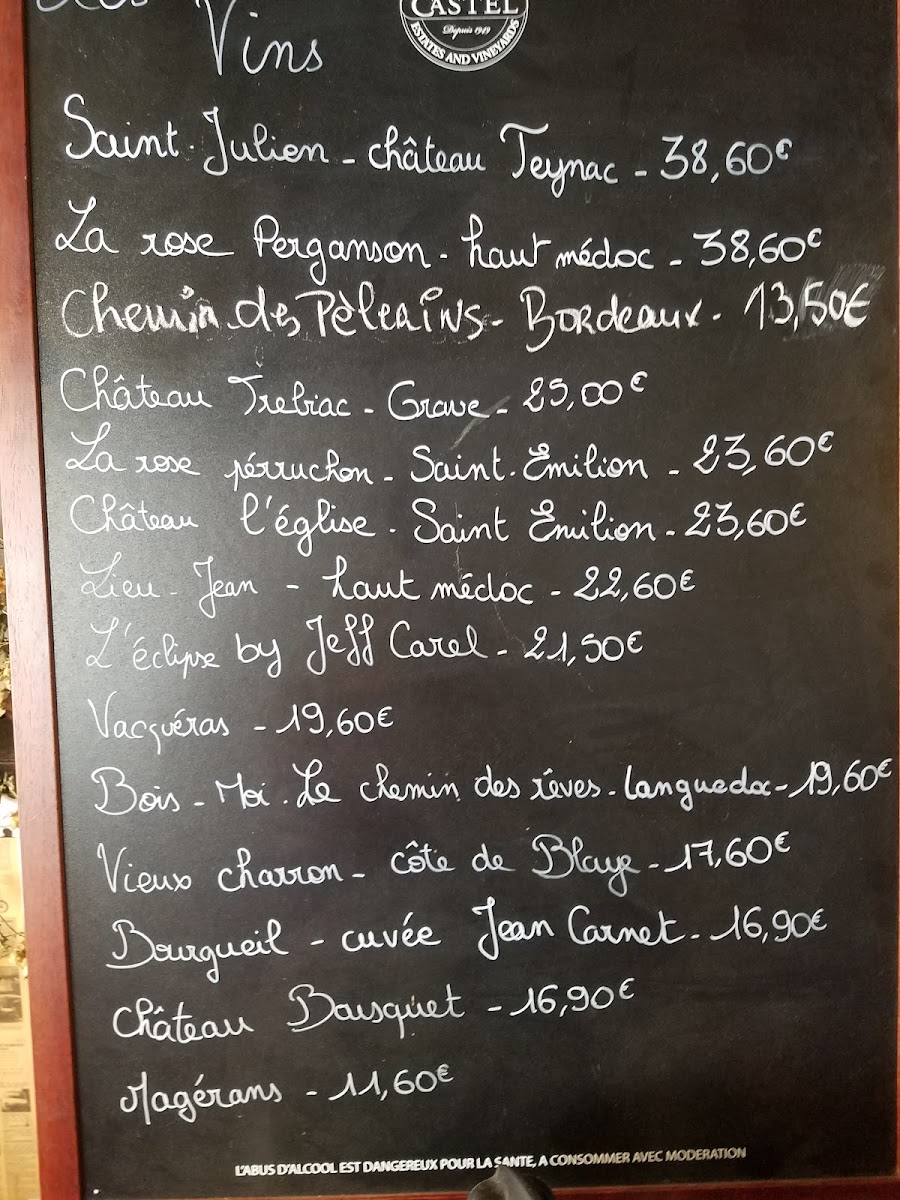 Vins
CASTEL
Depuis 1949
ESTATES AND VINEYARDS
Saint-Julien - château Teynac - 38,60€
La rose Perganson - haut médoc - 38,60€
Chemin des Pèlerins - Bordeaux - 13,50€
Château Trebiac - Grave - 25,00€
La rose pérruchon - Saint-Emilion - 23,60€
Château l'église - Saint Emilion - 23,60€
Lieu-Jean - haut médoc - 22,60€
L'éclipse by Jeff Carel - 21,50€
Vacquéras - 19,60€
Bois-Moi. Le chemin des rêves - Languedoc - 19,60€
Vieux charron - côte de Blaye - 17,60€
Bourgueil - cuvée Jean Carnet - 16,90€
Château Bousquet - 16,90€
Magérans - 11,60€
L'ABUS D'ALCOOL EST DANGEREUX POUR LA SANTE, A CONSOMMER AVEC MODERATION